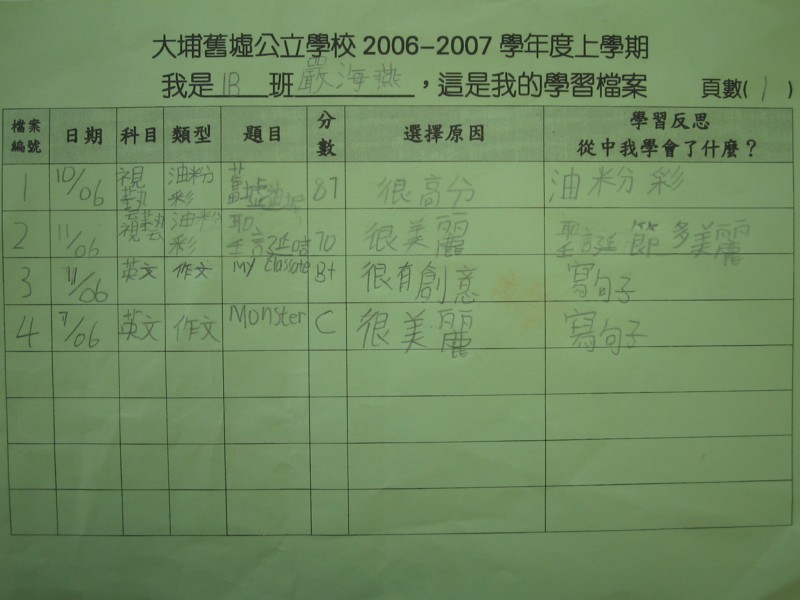 大埔舊墟公立學校 2006-2007 學年度上學期
我是 1B 班 嚴海燕 ，這是我的學習檔案 頁數( 1 )
檔案編號 日期 科目 類型 題目 分數 選擇原因 學習反思 從中我學會了什麼？
1 10/06 視藝 油粉彩 舊墟 87 很高分 油粉彩
2 11/06 視藝 油粉彩 聖誕 70 很美麗 聖誕節多美麗
3 11/06 英文 作文 My B+ 很有創意 寫句子
4 7/06 英文 作文 Monster C 很美麗 寫句子